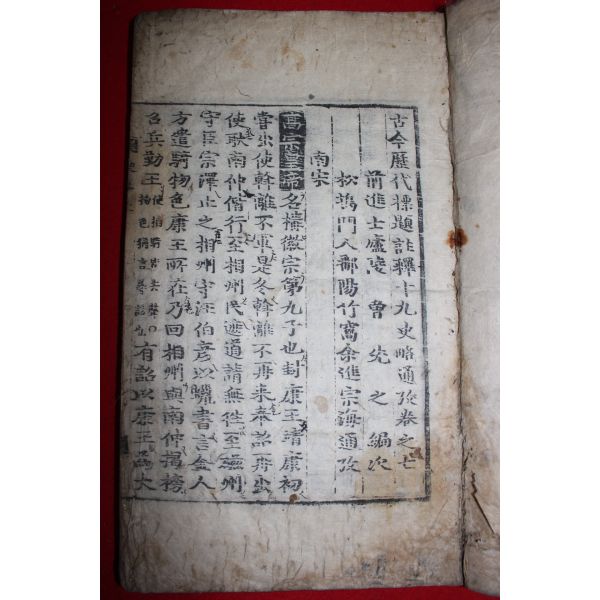 古今歷代標題註釋十九史略通攷卷之七
前進士廬陵曾先之編次
松塢門人鄱陽竹窩余進宗海通攷
南宋
高宗皇帝名構徽宗第九子也封康王靖康初
嘗出使斡离不軍是冬斡离不再来奉詔再出
使耿南仲偕行至相州民遮道請無徃至磁州
守臣宗澤止之相州守汪伯彦以蠟書言金人
方遣騎物色康王所在乃回相州與南仲揭榜
召兵勤王 有詔以康王為大